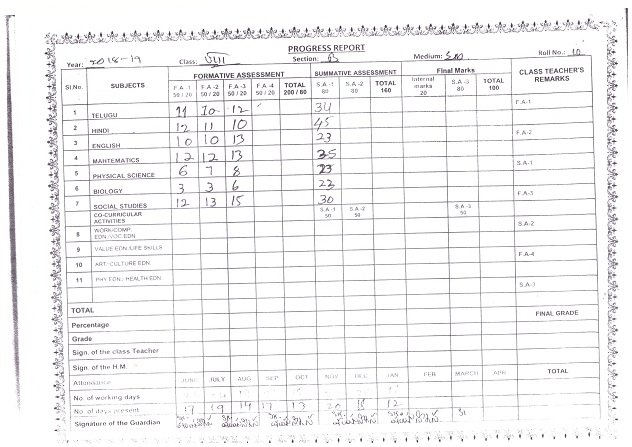 PROGRESS REPORT
Year: 2018-19 Class: VIII Section: B Medium: E/M Roll No.: 10
Sl.No. SUBJECTS FORMATIVE ASSESSMENT SUMMATIVE ASSESSMENT Final Marks CLASS TEACHER'S REMARKS
F.A -1 50 / 20 F.A -2 50 / 20 F.A -3 50 / 20 F.A -4 50 / 20 TOTAL 200 / 80 S.A -1 80 S.A -2 80 TOTAL 160 Internal marks 20 S.A -3 80 TOTAL 100
F.A-1
1 TELUGU 11 10 12 34
2 HINDI 12 11 10 45
F.A-2
3 ENGLISH 10 10 13 23
4 MAHTEMATICS 12 12 13 35
S.A-1
5 PHYSICAL SCIENCE 6 7 8 23
6 BIOLOGY 3 3 6 23
F.A-3
7 SOCIAL STUDIES 12 13 15 30
CO-CURRICULAR ACTIVITIES S.A -1 50 S.A -2 50 S.A -3 50
S.A-2
8 WORK/COMP. EDN./VOC.EDN
9 VALUE EDN./LIFE SKILLS
F.A-4
10 ART.-CULTURE EDN.
11 PHY.EDN./ HEALTH EDN.
S.A-3
TOTAL
FINAL GRADE
Percentage
Grade
Sign. of the class Teacher
Sign. of the H.M.
Attendance JUNE JULY AUG SEP OCT NOV DEC JAN FEB MARCH APR TOTAL
No. of working days
No. of days present 17 19 19 17 13 20 18 12
Signature of the Guardian